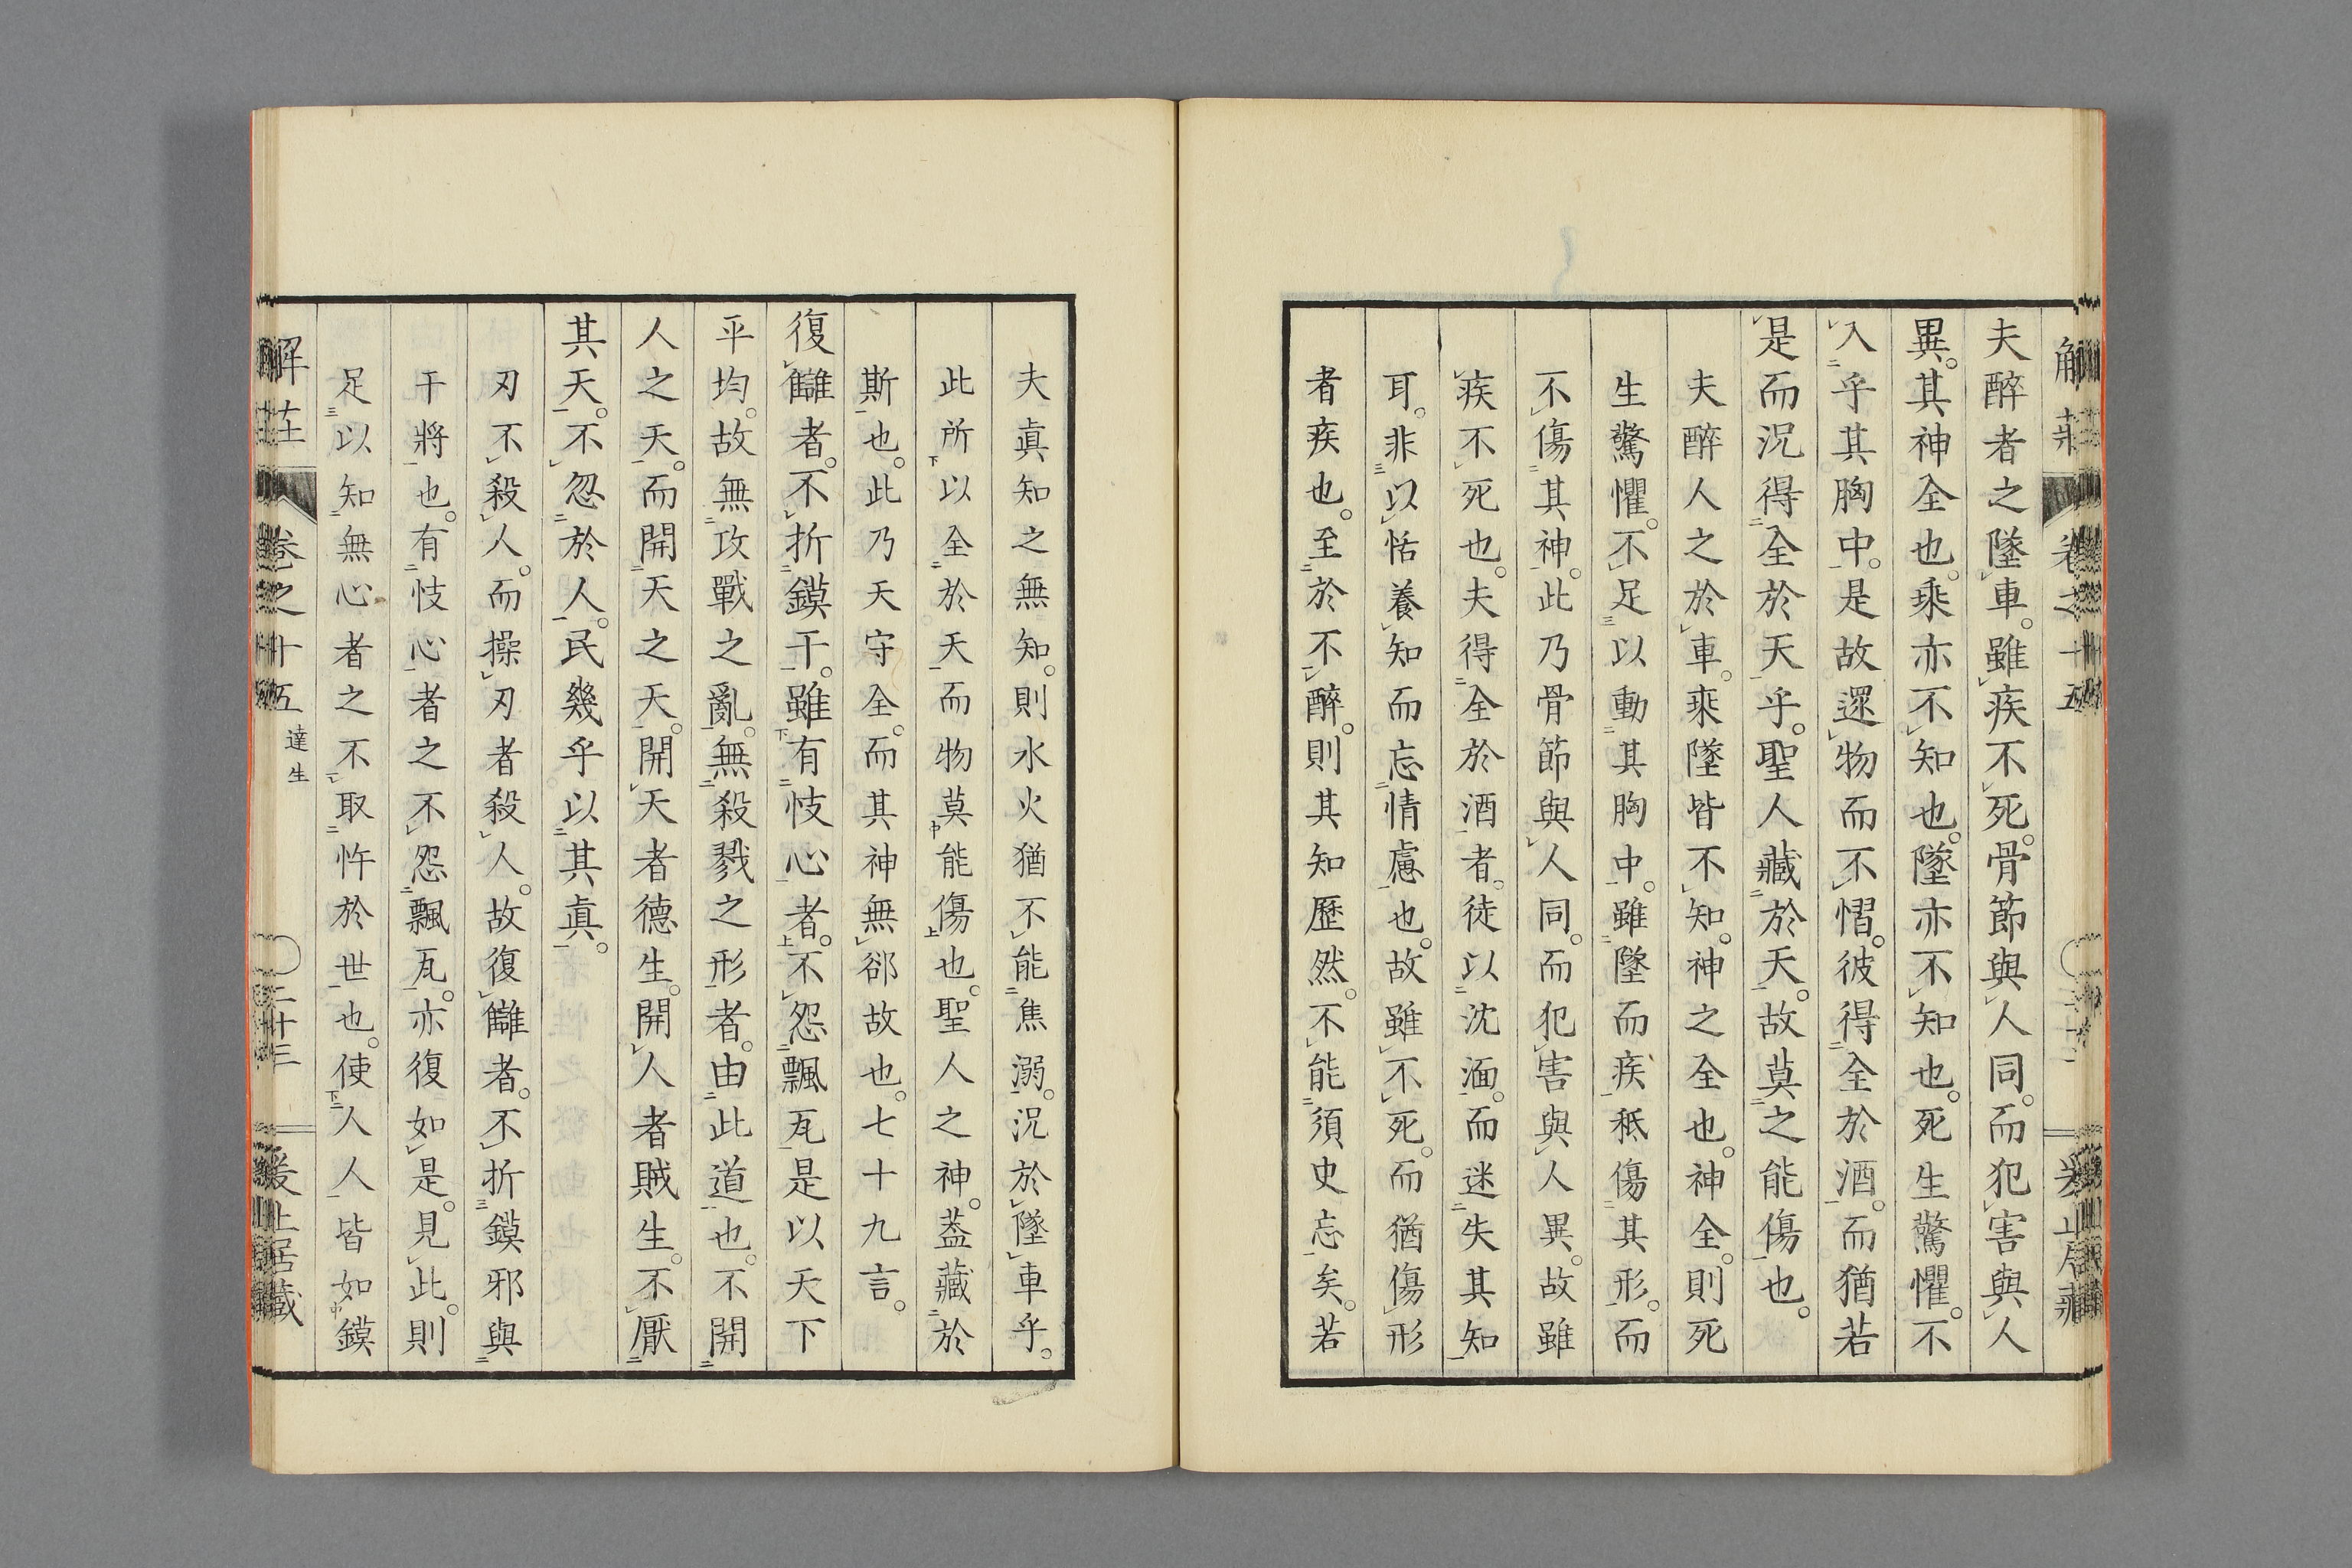 夫醉者之墬車。雖疾不死。骨節與人同。而犯害與人
異。其神全也。乘亦不知也。墬亦不知也。死生驚懼。不
入乎其胸中。是故遻物而不慴。彼得全於酒。而猶若
是而況得全於天乎。聖人藏於天。故莫之能傷也。
夫醉人之於車。乘墬皆不知。神之全也。神全。則死
生驚懼。不足以動其胸中。雖墬而疾秪傷其形。而
不傷其神。此乃骨節與人同。而犯害與人異。故雖
疾不死也。夫得全於酒者。徒以沈湎。而迷失其知
耳。非以恬養知而忘情慮也。故雖不死。而猶傷形
者疾也。至於不醉。則其知歷然。不能須史忘矣。若
夫眞知之無知。則水火猶不能焦溺。況於墬車乎。
此所以全於天而物莫能傷也。聖人之神。葢藏於
斯也。此乃天守全。而其神無郤故也。七十九言。
復讎者。不折鏌干。雖有忮心者。不怨飄瓦。是以天下
平均。故無攻戰之亂。無殺戮之形者。由此道也。不開
人之天。而開天之天。開天者德生。開人者賊生。不厭
其天。不忽於人。民幾乎以其眞。
刃不殺人。而操刃者殺人。故復讎者。不折鏌邪與
干將也。有忮心者之不怨飄瓦。亦復如是。見此。則
足以知無心者之不取忤於世也。使人人皆如鏌
解莊 卷之十五 達生 二十三